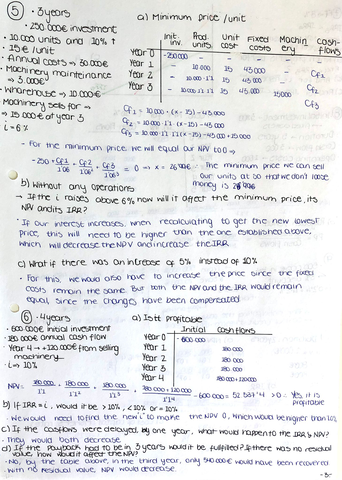 5
· 3 years
· 250.000€ investment
· 10.000 units and 10% ↑
· 15€/unit
· Annual costs → 30.000€
· Machinery maintenance → 3.000€
· Wharehouse → 10.000€
Machinery sells for → → 15.000€ at year 3
i = 6%
a) Minimum price /unit
Init. inv. Prod. units Unit cost Fixed costs Machinery Cash-flows
Year 0 -250000 - - - -
Year 1 - 10.000 15 43.000 - CF1
Year 2 - 10.000·1'1 15 43.000 - CF2
Year 3 10.000·1'1·1'1 15 43.000 15000 CF3
CF1 = 10.000·(x-15)-43.000
CF2 = 10.000·1'1·(x-15)-43.000
CF3 = 10.000·1'1·1'1(x-15)-43.000+15.000
- For the minimum price we will equal our NPV to 0 →
The minimum price we can sell
our units at so that we don't loose
money is
b) Without any operations
→ If the i raises above 6% how will it affect the minimum price, its
NPV and its IRR?
· If our interest increases, when recalculating to get the new lowest
price, this will need to be higher than the one established above,
which will decrease the NPV and increase the IRR
c) What if there was an increase of 5% instead of 10%
· For this, we would also have to increase the price since the fixed
costs remain the same. But both the NPV and the IRR would remain
equal since the changes have been compensated
6
· 4 years
· 600 000€ initial investment
· 180 000€ annual cash flow
· Year 4 → +120 000€ from selling
machinery
· i = 10%
a) Is it profitable
Initial Cashflows
Year 0 -600 000
Year 1 180 000
Year 2 180 000
Year 3 180 000
Year 4 180 000+120000
> 0 · Yes it is
profitable
b) If IRR = i, would it be >10%, <10% or =10%
· We would need to find the new i to make the NPV 0, which would be higher than 10%
c) If the cashflows were delayed by one year, what would happen to the IRR & NPV?
· They would both decrease
d) If the payback had to be in 3 years would it be fulfilled? If there was no residual
value, how would it affect the NPV?
· No, by the table above, in the third year, only 540 000€ would have been recovered
with no residual value, NPV would decrease.